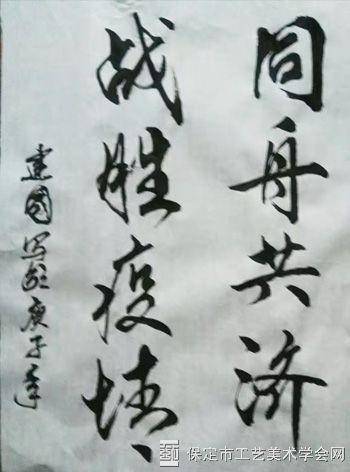 同舟共济
战胜疫情
建國写於庚子年
保定市工艺美术学会网